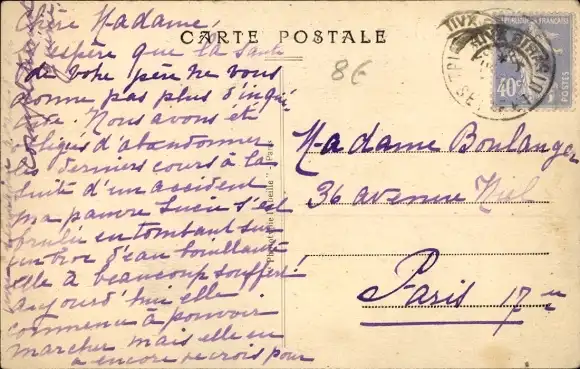 CARTE POSTALE
8€
Chère Madame,
J'espère que la santé
de votre père ne vous
donne pas plus d'inquié
tude. Nous avons été
obligés d'abandonner
les derniers cours à la
suite d'un accident
ma pauvre Lucie s'est
brulée en tombant sur
un broc d'eau bouillante
elle a beaucoup souffert!
aujourd'hui elle
commence à pouvoir
marcher mais elle en
a encore je crois pour
Madame Boulanger
36 avenue Niel
Paris 17e
40c
POSTES